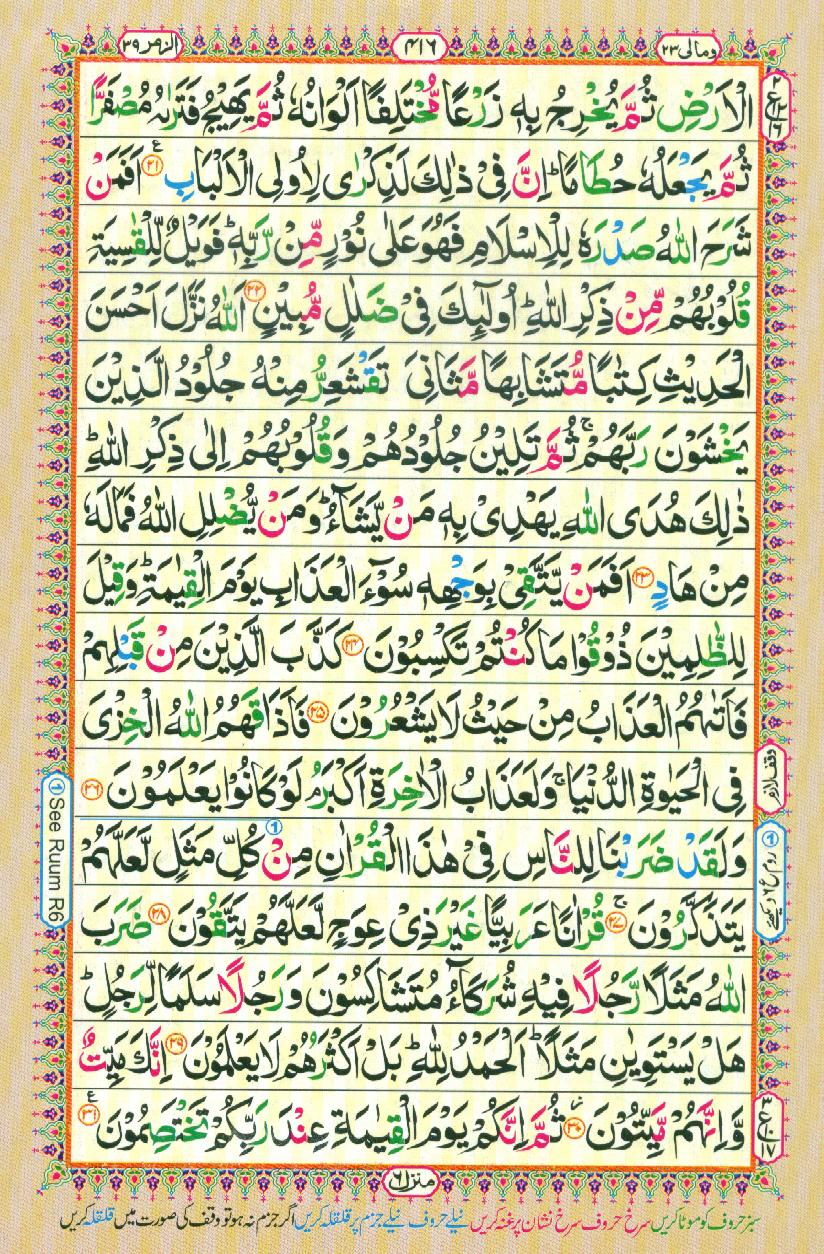 الزمر ٣٩
٤١٦
ومالی ٢٣
الْاَرْضِ ثُمَّ یُخْرِجُ بِهٖ زَرْعًا مُّخْتَلِفًا اَلْوَانُهٗ ثُمَّ یَهِیْجُ فَتَرٰىهُ مُصْفَرًّا
ثُمَّ یَجْعَلُهٗ حُطَامًا ؕ اِنَّ فِیْ ذٰلِكَ لَذِكْرٰی لِاُولِی الْاَلْبَابِ ﴿٢١﴾ اَفَمَنْ
شَرَحَ اللّٰهُ صَدْرَهٗ لِلْاِسْلَامِ فَهُوَ عَلٰی نُوْرٍ مِّنْ رَّبِّهٖ ؕ فَوَیْلٌ لِّلْقٰسِیَةِ
قُلُوْبُهُمْ مِّنْ ذِكْرِ اللّٰهِ ؕ اُولٰٓىِٕكَ فِیْ ضَلٰلٍ مُّبِیْنٍ ﴿٢٢﴾ اَللّٰهُ نَزَّلَ اَحْسَنَ
الْحَدِیْثِ كِتٰبًا مُّتَشَابِهًا مَّثَانِیَ تَقْشَعِرُّ مِنْهُ جُلُوْدُ الَّذِیْنَ
یَخْشَوْنَ رَبَّهُمْ ۚ ثُمَّ تَلِیْنُ جُلُوْدُهُمْ وَقُلُوْبُهُمْ اِلٰی ذِكْرِ اللّٰهِ ؕ
ذٰلِكَ هُدَی اللّٰهِ یَهْدِیْ بِهٖ مَنْ یَّشَآءُ ؕ وَمَنْ یُّضْلِلِ اللّٰهُ فَمَا لَهٗ
مِنْ هَادٍ ﴿٢٣﴾ اَفَمَنْ یَّتَّقِیْ بِوَجْهِهٖ سُوْٓءَ الْعَذَابِ یَوْمَ الْقِیٰمَةِ ؕ وَقِیْلَ
لِلظّٰلِمِیْنَ ذُوْقُوْا مَا كُنْتُمْ تَكْسِبُوْنَ ﴿٢٤﴾ كَذَّبَ الَّذِیْنَ مِنْ قَبْلِهِمْ
فَاَتٰىهُمُ الْعَذَابُ مِنْ حَیْثُ لَا یَشْعُرُوْنَ ﴿٢٥﴾ فَاَذَاقَهُمُ اللّٰهُ الْخِزْیَ
فِی الْحَیٰوةِ الدُّنْیَا ۚ وَلَعَذَابُ الْاٰخِرَةِ اَكْبَرُ ۘ لَوْ كَانُوْا یَعْلَمُوْنَ ﴿٢٦﴾
وَلَقَدْ ضَرَبْنَا لِلنَّاسِ فِیْ هٰذَا الْقُرْاٰنِ مِنْ كُلِّ مَثَلٍ لَّعَلَّهُمْ
یَتَذَكَّرُوْنَ ﴿٢٧﴾ ۚ قُرْاٰنًا عَرَبِیًّا غَیْرَ ذِیْ عِوَجٍ لَّعَلَّهُمْ یَتَّقُوْنَ ﴿٢٨﴾ ضَرَبَ
اللّٰهُ مَثَلًا رَّجُلًا فِیْهِ شُرَكَآءُ مُتَشَاكِسُوْنَ وَرَجُلًا سَلَمًا لِّرَجُلٍ ؕ
هَلْ یَسْتَوِیٰنِ مَثَلًا ؕ اَلْحَمْدُ لِلّٰهِ ۚ بَلْ اَكْثَرُهُمْ لَا یَعْلَمُوْنَ ﴿٢٩﴾ اِنَّكَ مَیِّتٌ
وَّاِنَّهُمْ مَّیِّتُوْنَ ﴿٣٠﴾ ثُمَّ اِنَّكُمْ یَوْمَ الْقِیٰمَةِ عِنْدَ رَبِّكُمْ تَخْتَصِمُوْنَ ﴿٣١﴾
وقف لازم
① See Ruum R6
منزل ٦
سبز حروف کو موٹا کریں سرخ حروف سرخ نشان پر غنہ کریں نیلے حروف نیلے جزم پر قلقلہ کریں اگر جزم نہ ہو تو وقف کی صورت میں قلقلہ کریں